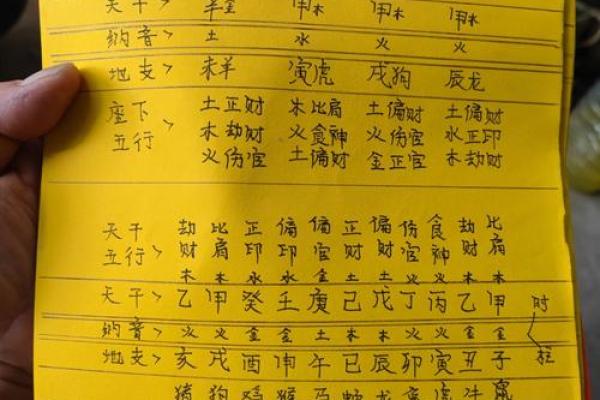 天干> 辛金 甲木 甲木 甲木
纳音> 土 水 火 火
地支> 未羊 寅虎 戌狗 辰龙
座下 土正财 木比肩 土偏财 土偏财
五行> 木劫财 火食神 火伤官 水正印
火伤官 土偏财 金正官 木劫财
天干 劫 比 正 偏 偏 正 偏 伤 食 劫 比
五行> 财 肩 印 印 官 财 财 官 神 财 肩
木 木 水 水 金 土 土 火 火 木 木
天干> 乙 甲 癸 壬 庚 己 戊 丁 丙 乙 甲 时
纳音> 火 火 金 金 土 木 木 火 火 金 金
地支> 亥 戌 酉 申 午 巳 辰 卯 寅 丑 子 柱
猪 狗 鸡 猴 马 蛇 龙 兔 虎 牛 鼠